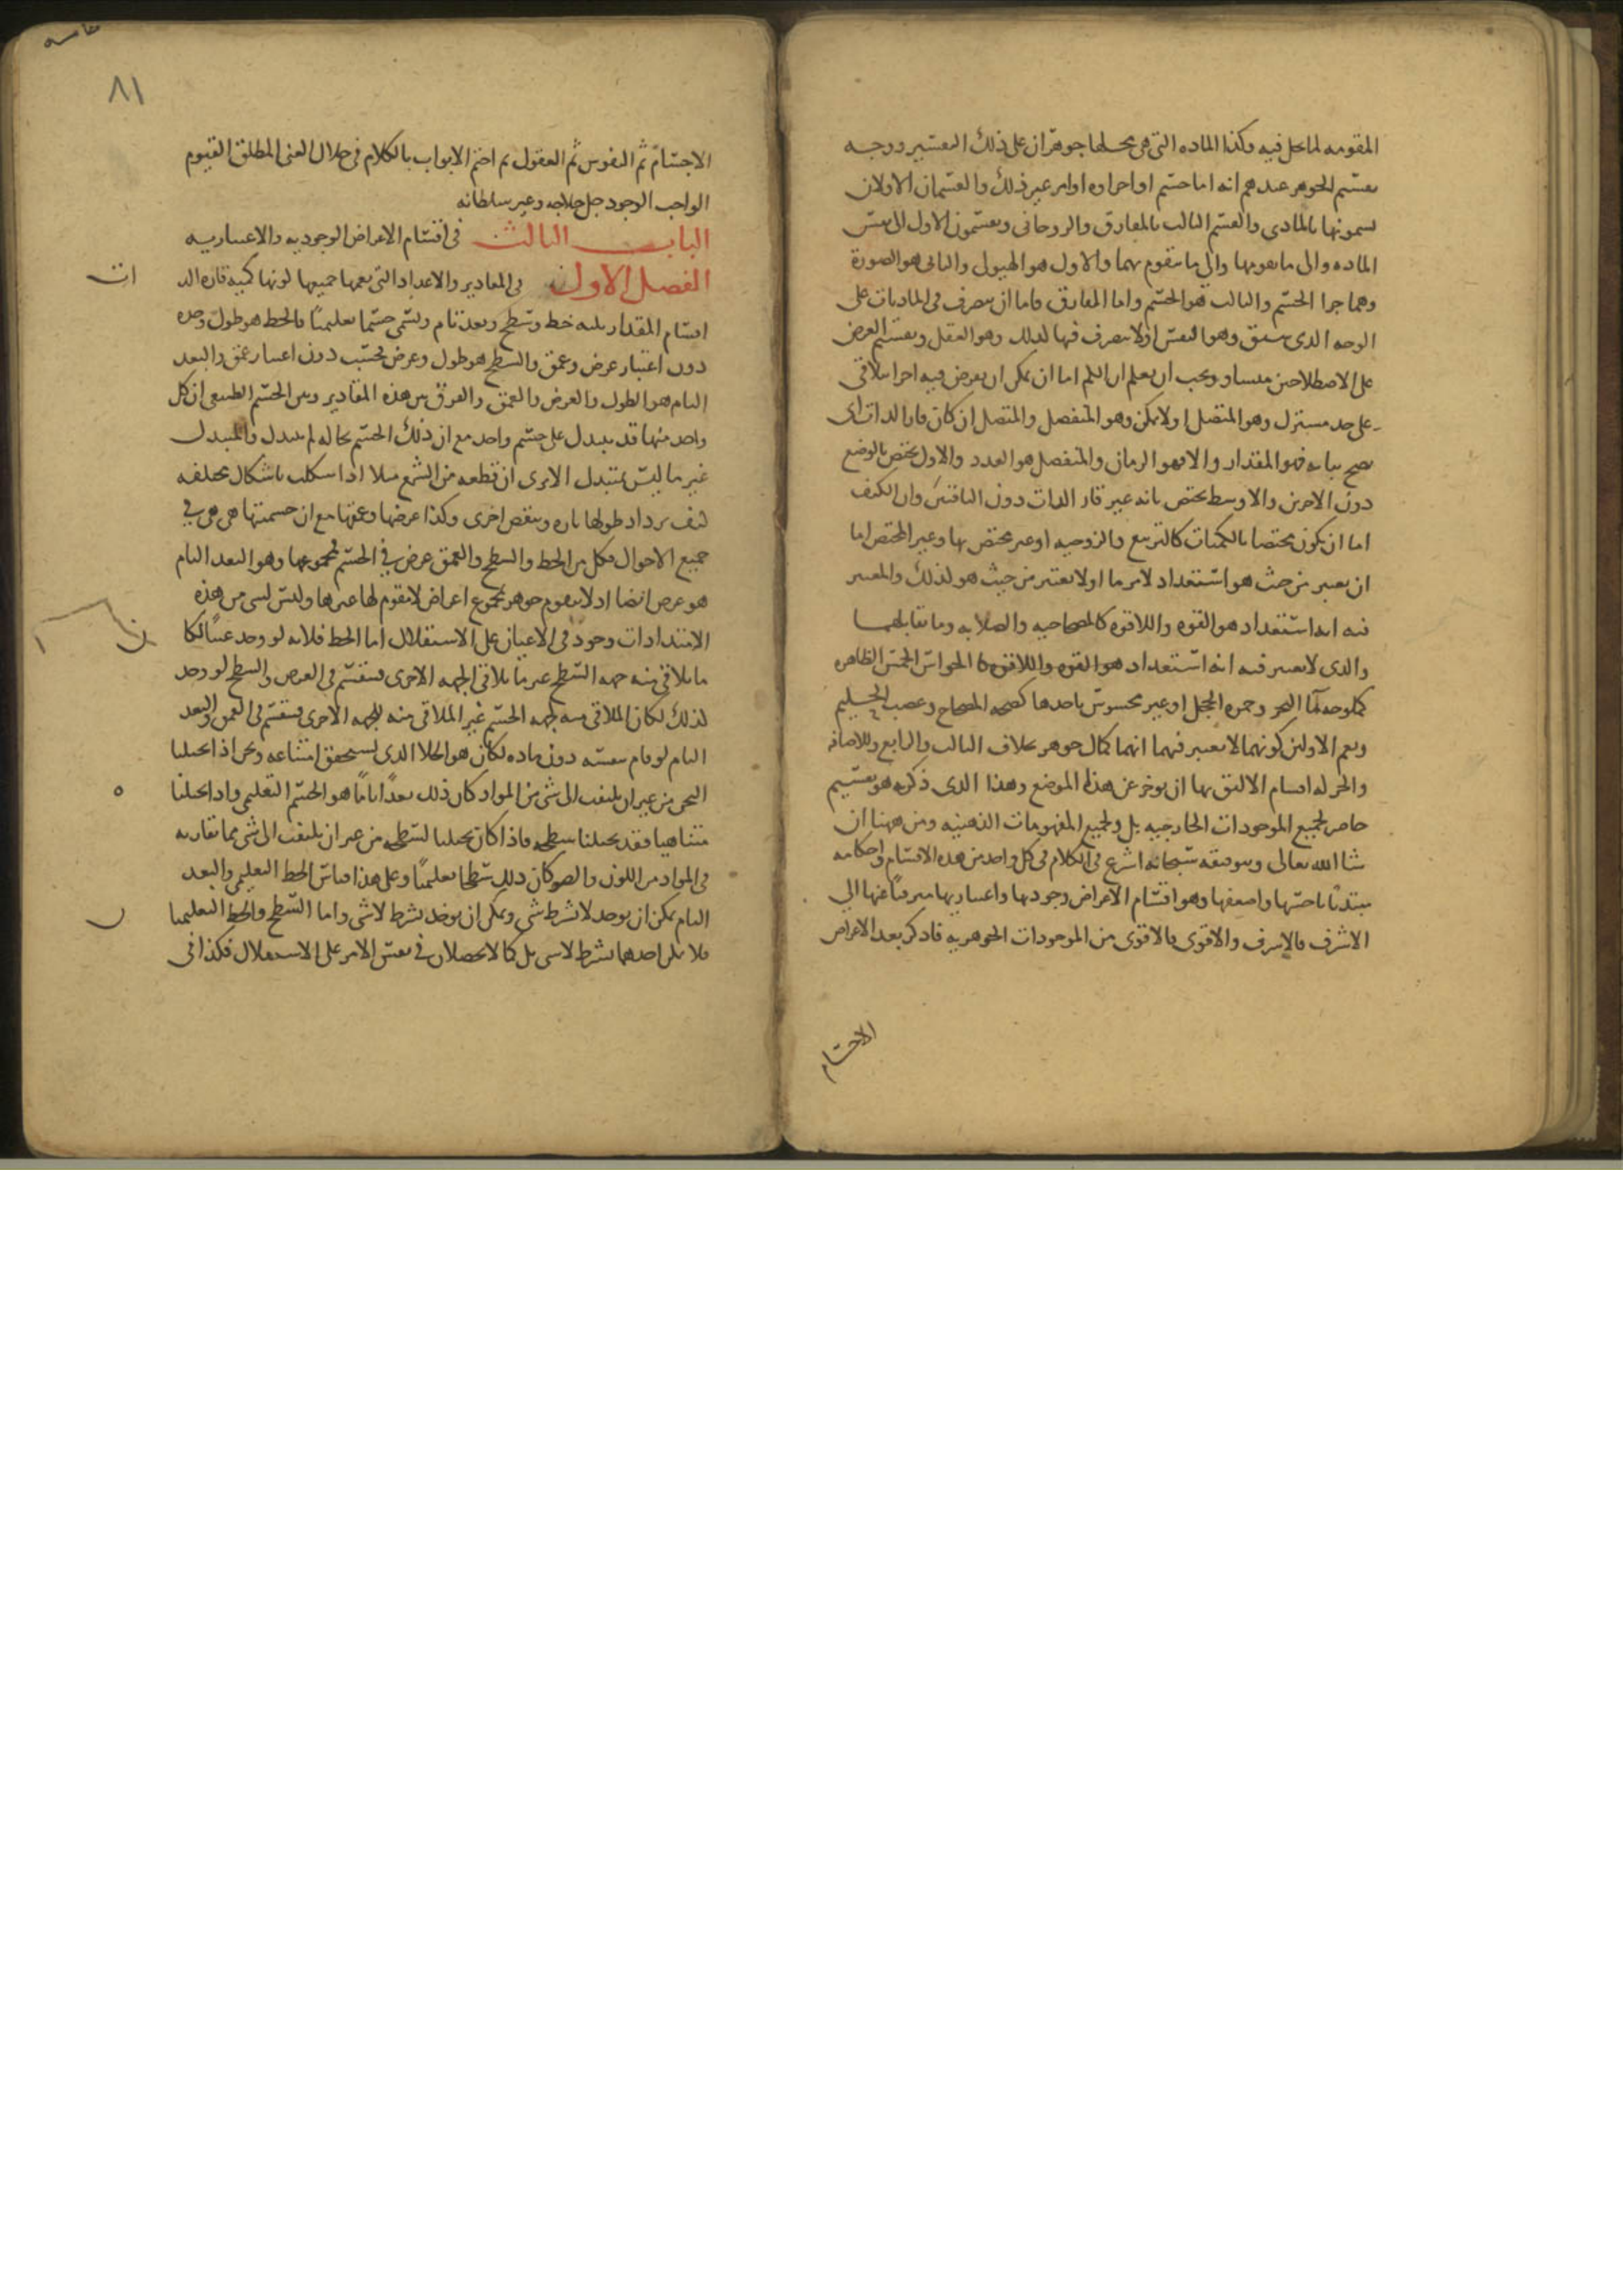 المقومه لما يحل فيه وكذا الماده التى هى محلها جوهران على ذلك التفسير ووجه
تقسيم الجوهر عندهم انه اما جسم او اجزاوه او امر غير ذلك والقسمان الاولان
يسمونها بالمادى والقسم الثالث بالمفارق والروحانى ويقسمون الاول الى نفس
الماده والى ما يقومها والى ما يتقوم بهما والاول هو الهيولى والثانى هو الصورة
وهما جزا الجسم والثالث هو الجسم واما المفارق فاما ان يتصرف فى الماديات على
الوجه الذى سبق وهو النفس او لا يتصرف فيها كذلك وهو العقل وتقسيم العرض
على الاصطلاحين متساو ويجب ان يعلم ان الكم اما ان يمكن ان يفرض فيه اجزا تتلاقى
على حد مشترك وهو المتصل او لا يمكن وهو المنفصل والمتصل ان كان قار الذات اى
يصح ثباته فهو المقدار والا فهو الزمان والمنفصل هو العدد والاول يختص بالوضع
دون الاخرين والاوسط يختص بانه غير قار الذات دون الباقيين وان الكيف
اما ان يكون مختصا بالكميات كالتربيع والزوجيه او غير مختص بها وغير المختص اما
ان يعتبر من حيث هو استعداد لامر ما او لا يعتبر من حيث هو كذلك والمعتبر
فيه انه استعداد هو القوه واللاقوه كالمصحاحيه والصلابه وما تقابلهما
والذى لا يعتبر فيه انه استعداد الحواس الخمس الظاهره
كملوحه ما البحر وحمره الخجل او غير محسوس باحدها كصحه المصحاح وغضب الحليم
ويعم الاولين كونهما لا يعتبر فيهما انهما كمال جوهر بخلاف الثالث والرابع وللاضافه
والحركه اقسام الاليق بها ان يوخر عن هذا الموضع وهذا الذى ذكرته هو تقسيم
حاصر لجميع الموجودات الخارجيه بل ولجميع المفهومات الذهنيه ومن ههنا ان
شا الله تعالى وبتوفيقه سبحانه اشرع فى الكلام فى كل واحد من هذه الاقسام واحكامه
مبتدئا باخسها واضعفها وهو اقسام الاعراض وجوديها واعتباريها مترقيا عنها الى
الاشرف فالاشرف والاقوى فالاقوى من الموجودات الجوهريه فاذكر بعد الاعراض
الاجسام
٨١
الاجسام ثم النفوس ثم العقول ثم اختم الابواب بالكلام فى جلال الغنى المطلق القيوم
الواجب الوجود جل جلاله وعز سلطانه
الباب الثالث فى اقسام الاعراض الوجوديه والاعتباريه
الفصل الاول فى المقادير والاعداد التى يعمها جميعها كونها كميه قاره الذ
ات
اقسام المقدار ثلثه خط وسطح وبعد تام ويسمى جسما تعليميا فالخط هو طول وحده
دون اعتبار عرض وعمق والسطح هو طول وعرض فحسب دون اعتبار عمق والبعد
التام هو الطول والعرض والعمق والفرق بين هذه المقادير وبين الجسم الطبيعى ان كل
واحد منها قد يتبدل على جسم واحد مع ان ذلك الجسم بحاله لم يتبدل والمتبدل
غير ما ليس بمتبدل الا يرى ان قطعه من الشمع مثلا اذا شكلت باشكال مختلفه
كيف يزداد طولها تاره وينقص اخرى وكذا عرضها وعمقها مع ان جسميتها هى هى فى
جميع الاحوال فكل من الخط والسطح والعمق عرض فى الجسم فمجموعها وهو البعد التام
هو عرض ايضا اذ لا يتقوم جوهر بمجموع اعراض لا مقوم لها غيرها وليس لشى من هذه
الامتدادات وجود فى الاعيان على الاستقلال اما الخط فلانه لو وجد عينا لكا
ن
ما يلاقى منه جهه السطح غير ما يلاقى الجهه الاخرى فينقسم فى العرض والسطح لو وجد
كذلك لكان الملاقى منه لجهه الجسم غير الملاقى منه للجهه الاخرى فينقسم فى العمق والبعد
التام لو قام بنفسه دون ماده لكان هو الخلا الذى ستحقق امتناعه ونحن اذا تخيلنا
الثخن من غير ان يلتفت الى شى من المواد كان ذلك بعدا تاما هو الجسم التعليمى واذا تخيلنا
ه
متناهيا فقد تخيلنا سطحه فاذا كان تخيلنا لسطحه من غير ان يلتفت الى شى مما تقارنه
فى المواد من اللون والضو كان ذلك سطحا تعليميا وعلى هذا قياس الخط التعليمى والبعد
التام يمكن ان يوخذ لا بشرط شى ويمكن ان يوخذ بشرط لا شى واما السطح والخط التعليميا
ن
فلا يمكن اخذهما بشرط لا شى بل كما لا يحصلان فى نفس الامر على الاستقلال فكذا فى